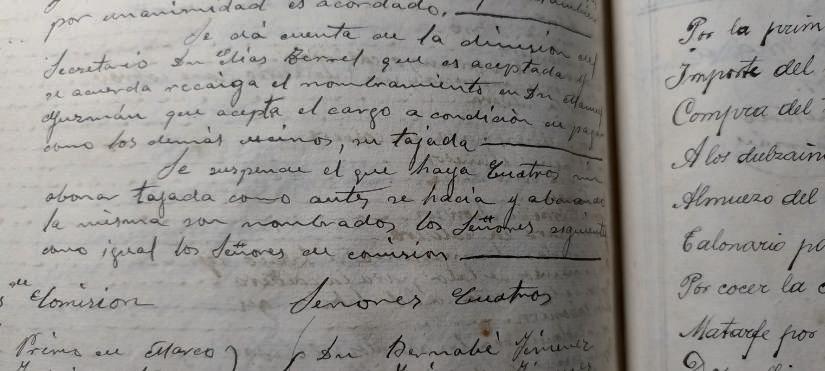 por unanimidad es acordado.
Se dá cuenta de la dimisión del
Secretario Dn Elías Terrel que es aceptada y
se acuerda recaiga el nombramiento en Dn Manuel
Guzmán que acepta el cargo a condición de pagar
como los demás vecinos, su tajada
Se suspende el que haya Cuatros sin
abonar tajada como antes se hacia y abonando
la misma son nombrados los Señores siguientes
como igual los Señores de comision.
Comision Señores Cuatros
Primo de Marco Dn Bernabé Jimenez
Por la prim
Importe del
Compra del
A los dulzain
Almuezo del
Talonario p
Por cocer la c
Matarfe por